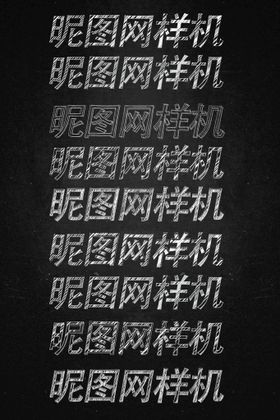 昵图网样机
昵图网样机
昵图网样机
昵图网样机
昵图网样机
昵图网样机
昵图网样机
昵图网样机
昵图网样机